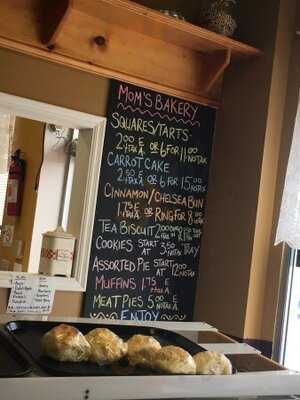 MOM'S BAKERY
SQUARES/TARTS
2.00 E +TAX A. OR 6 FOR 11.00 NO TAX
CARROT CAKE
2.50 E +TAX A. OR 6 FOR 15.00 NO TAX
CINNAMON/CHELSEA BUN
1.75 E +TAX A. OR RING FOR 8.00
TEA BISCUIT 2.00
COOKIES START AT 3.50 TRAY
ASSORTED PIE START AT 12.00 NO TAX
MUFFINS 1.75 E +TAX A.
MEAT PIES 5.00 E +TAX A.
ENJOY